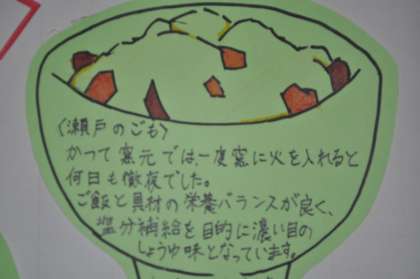 〈瀬戸のごも〉
かつて窯元では一度窯に火を入れると
何日も徹夜でした。
ご飯と具材の栄養バランスが良く、
塩分補給を目的に濃い目の
しょうゆ味となっています。